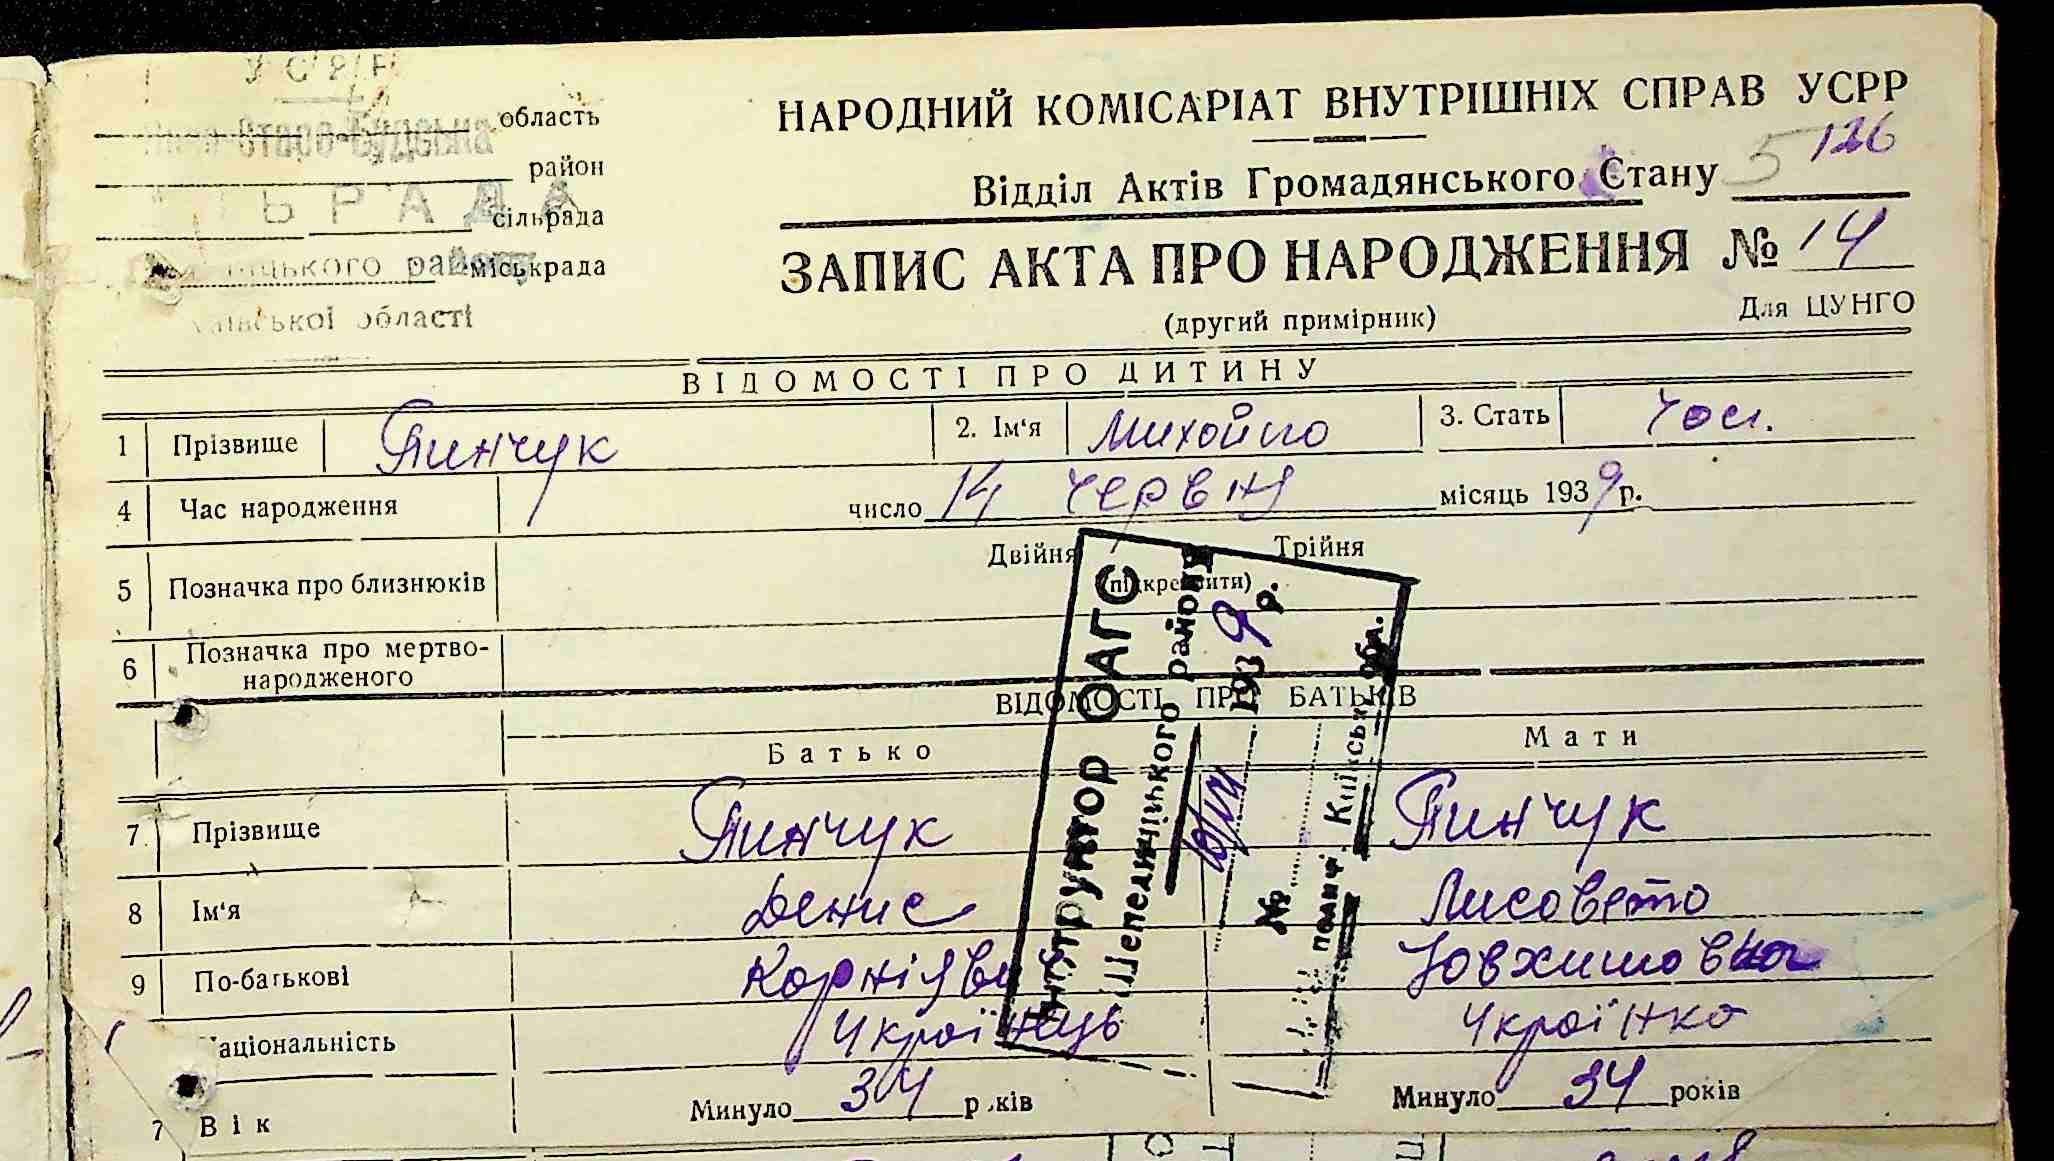 УСРР
область
Старо-Будська
район
РАДА
сільрада
району
міськрада
Київської області
НАРОДНИЙ КОМІСАРІАТ ВНУТРІШНІХ СПРАВ УСРР
Відділ Актів Громадянського Стану 5 126
ЗАПИС АКТА ПРО НАРОДЖЕННЯ № 14
(другий примірник)
Для ЦУНГО
ВІДОМОСТІ ПРО ДИТИНУ
1 Прізвище Пинчук 2. Ім'я Михойло 3. Стать чол.
4 Час народження число 14 червня місяць 1939 р.
5 Позначка про близнюків Двійня Трійня
(підкреслити)
6 Позначка про мертво-
народженого
ВІДОМОСТІ ПРО БАТЬКІВ
Батько Мати
7 Прізвище Пинчук Пинчук
8 Ім'я Денис Лисовето
9 По-батькові Корніяви Йовхимовна
Національність Україїнець Україїнко
7 Вік Минуло 34 років Минуло 34 років
Інструктор ОАГС
Шепеличіцького району
193 9 р.
№
полиф. Київськ. обл.